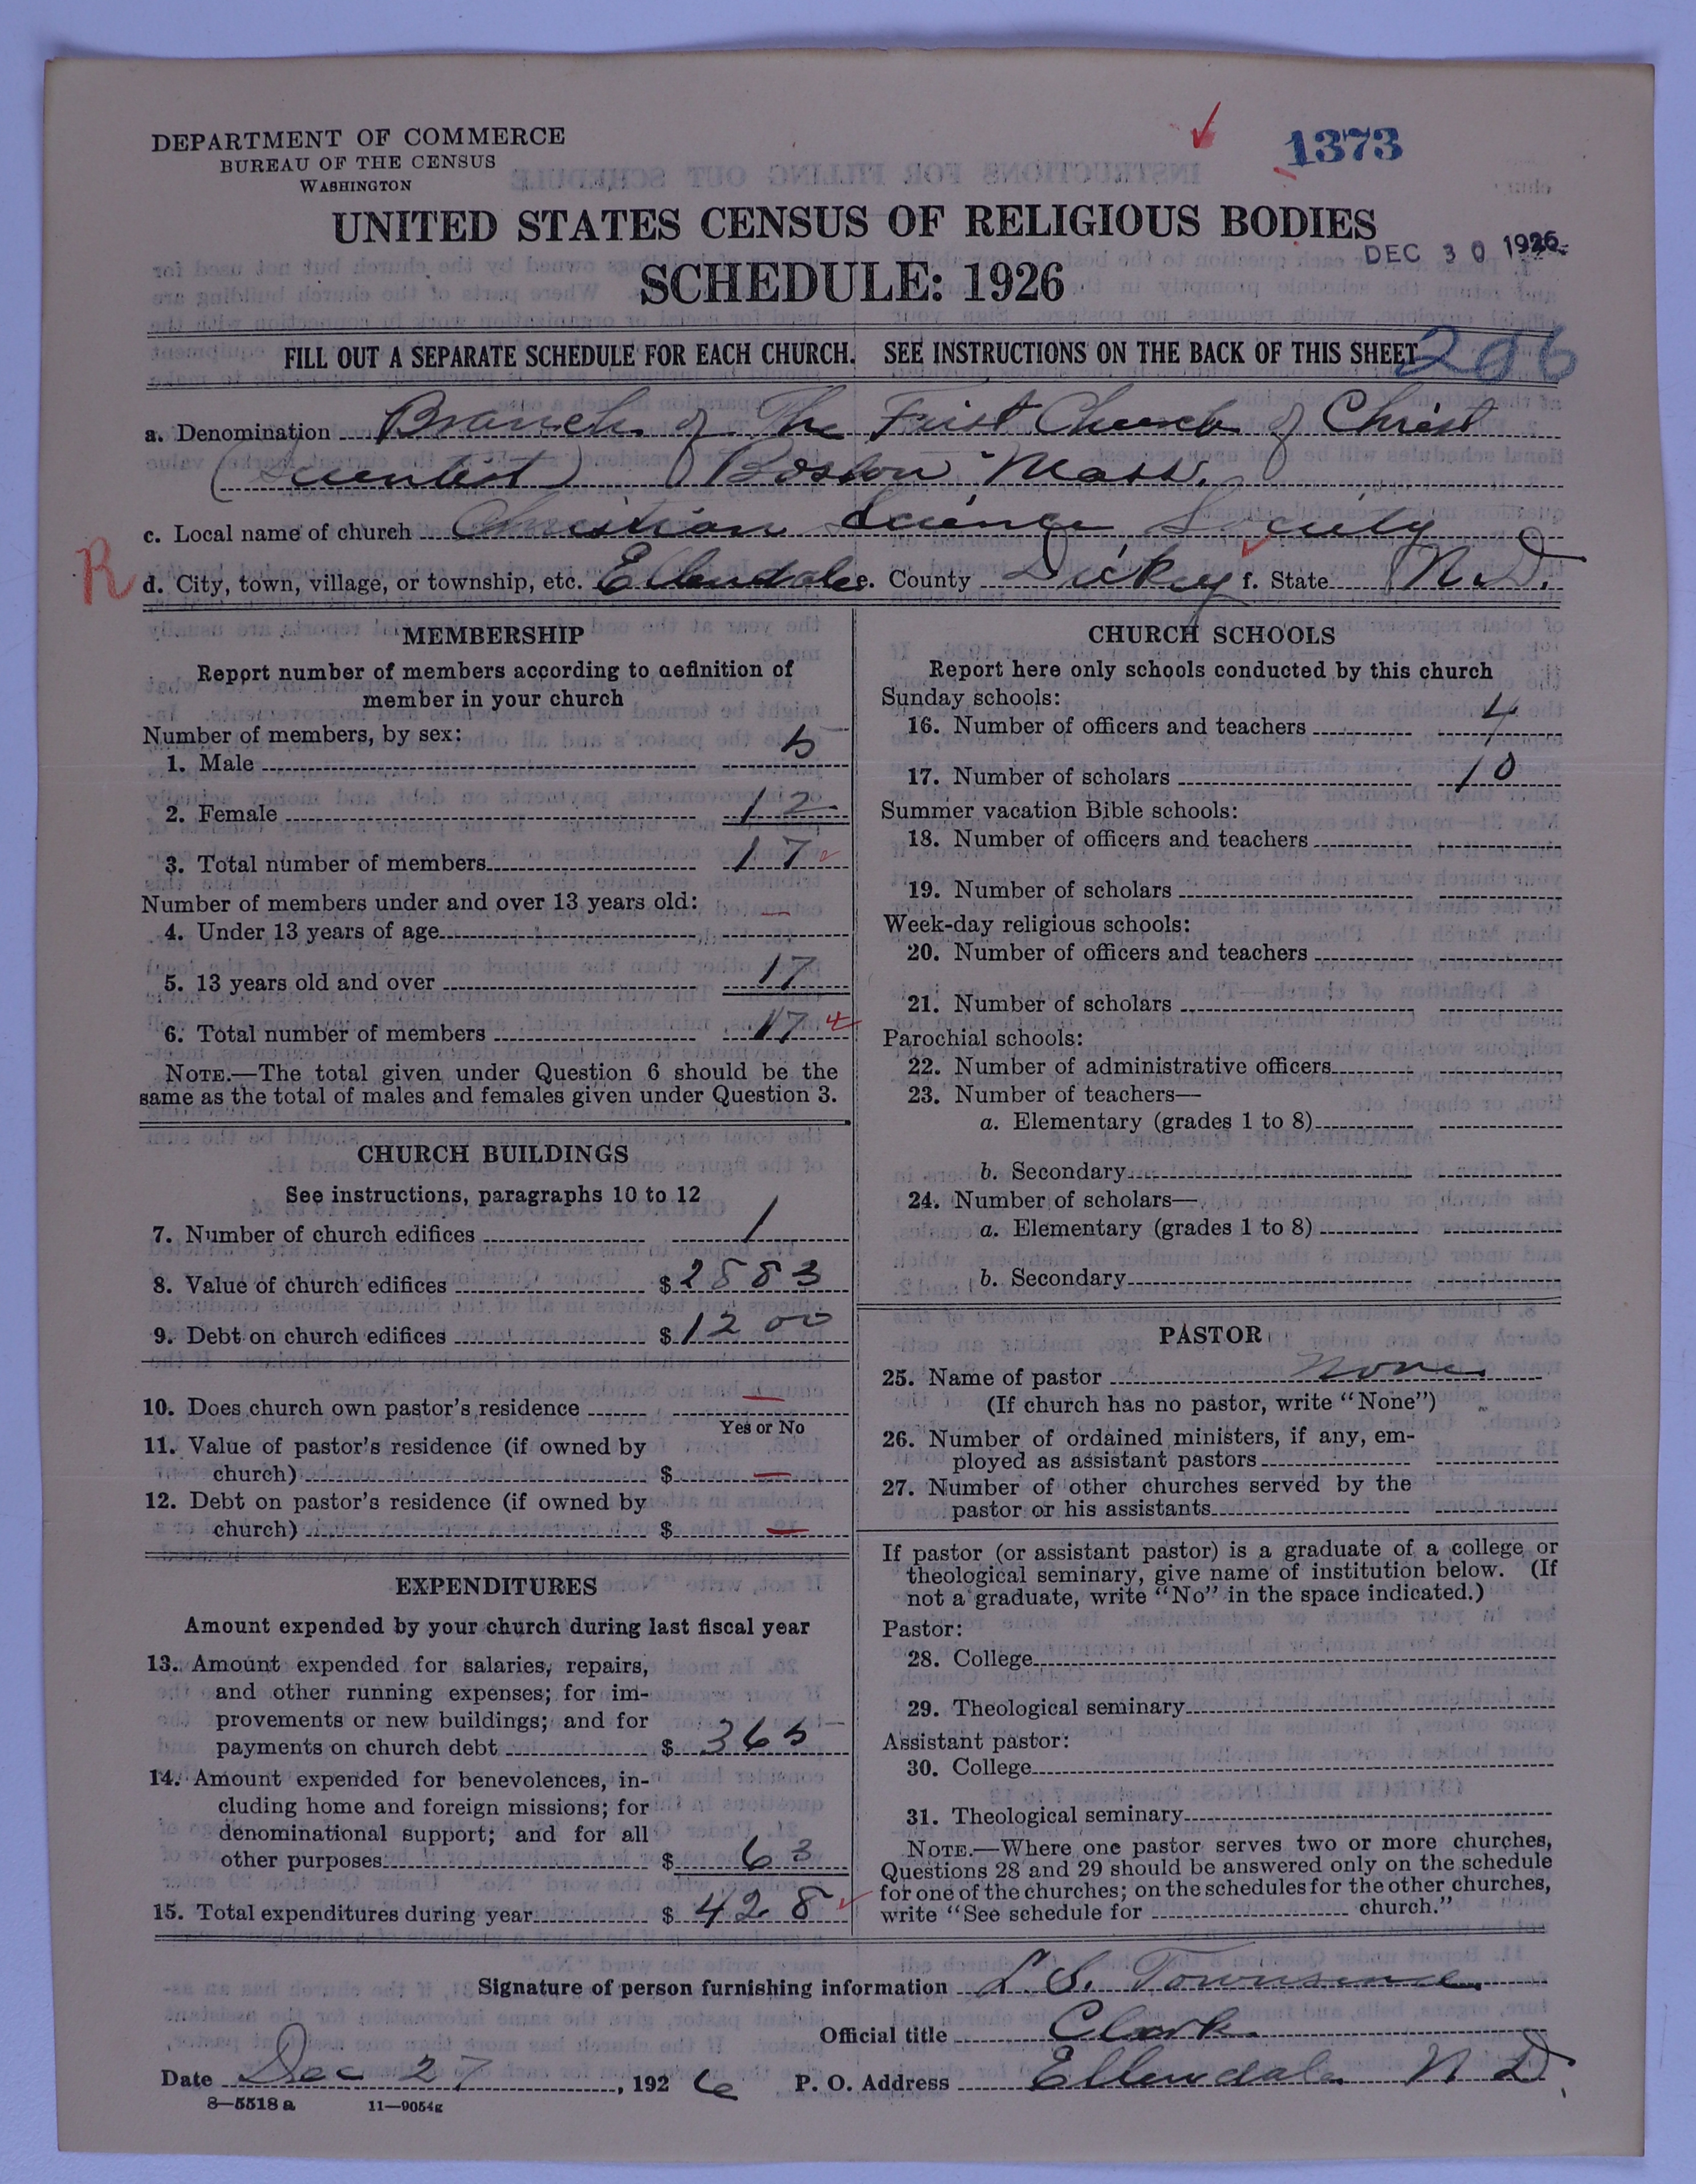 DEPARTMENT OF COMMERCE
BUREAU OF THE CENSUS
WASHINGTON
1373
UNITED STATES CENSUS OF RELIGIOUS BODIES
DEC 30 1926
SCHEDULE: 1926
FILL OUT A SEPARATE SCHEDULE FOR EACH CHURCH. SEE INSTRUCTIONS ON THE BACK OF THIS SHEET
206
a. Denomination Branch of The First Church of Christ
(Scientist) Boston Mass.
c. Local name of church Christian Science Society
R
d. City, town, village, or township, etc. Ellendale e. County Dickey f. State N.D.
MEMBERSHIP
Report number of members according to definition of
member in your church
Number of members, by sex:
1. Male 5
2. Female 12
3. Total number of members 17
Number of members under and over 13 years old:
4. Under 13 years of age —
5. 13 years old and over 17
6. Total number of members 17
NOTE.—The total given under Question 6 should be the
same as the total of males and females given under Question 3.
CHURCH BUILDINGS
See instructions, paragraphs 10 to 12
7. Number of church edifices 1
8. Value of church edifices $2883
9. Debt on church edifices $1200
10. Does church own pastor's residence —
Yes or No
11. Value of pastor's residence (if owned by
church) $ —
12. Debt on pastor's residence (if owned by
church) $ —
EXPENDITURES
Amount expended by your church during last fiscal year
13. Amount expended for salaries, repairs,
and other running expenses; for im-
provements or new buildings; and for
payments on church debt $ 365
14. Amount expended for benevolences, in-
cluding home and foreign missions; for
denominational support; and for all
other purposes $ 63
15. Total expenditures during year $ 428
CHURCH SCHOOLS
Report here only schools conducted by this church
Sunday schools:
16. Number of officers and teachers 4
17. Number of scholars 10
Summer vacation Bible schools:
18. Number of officers and teachers
19. Number of scholars
Week-day religious schools:
20. Number of officers and teachers
21. Number of scholars
Parochial schools:
22. Number of administrative officers
23. Number of teachers—
a. Elementary (grades 1 to 8)
b. Secondary
24. Number of scholars—
a. Elementary (grades 1 to 8)
b. Secondary
PASTOR
25. Name of pastor None
(If church has no pastor, write "None")
26. Number of ordained ministers, if any, em-
ployed as assistant pastors
27. Number of other churches served by the
pastor or his assistants
If pastor (or assistant pastor) is a graduate of a college or
theological seminary, give name of institution below. (If
not a graduate, write "No" in the space indicated.)
Pastor:
28. College
29. Theological seminary
Assistant pastor:
30. College
31. Theological seminary
NOTE.—Where one pastor serves two or more churches,
Questions 28 and 29 should be answered only on the schedule
for one of the churches; on the schedules for the other churches,
write "See schedule for church."
Signature of person furnishing information L S. Townsend
Official title Clerk
Date Dec 27, 1926 P. O. Address Ellendale N D.
8—5518 a 11—9054g